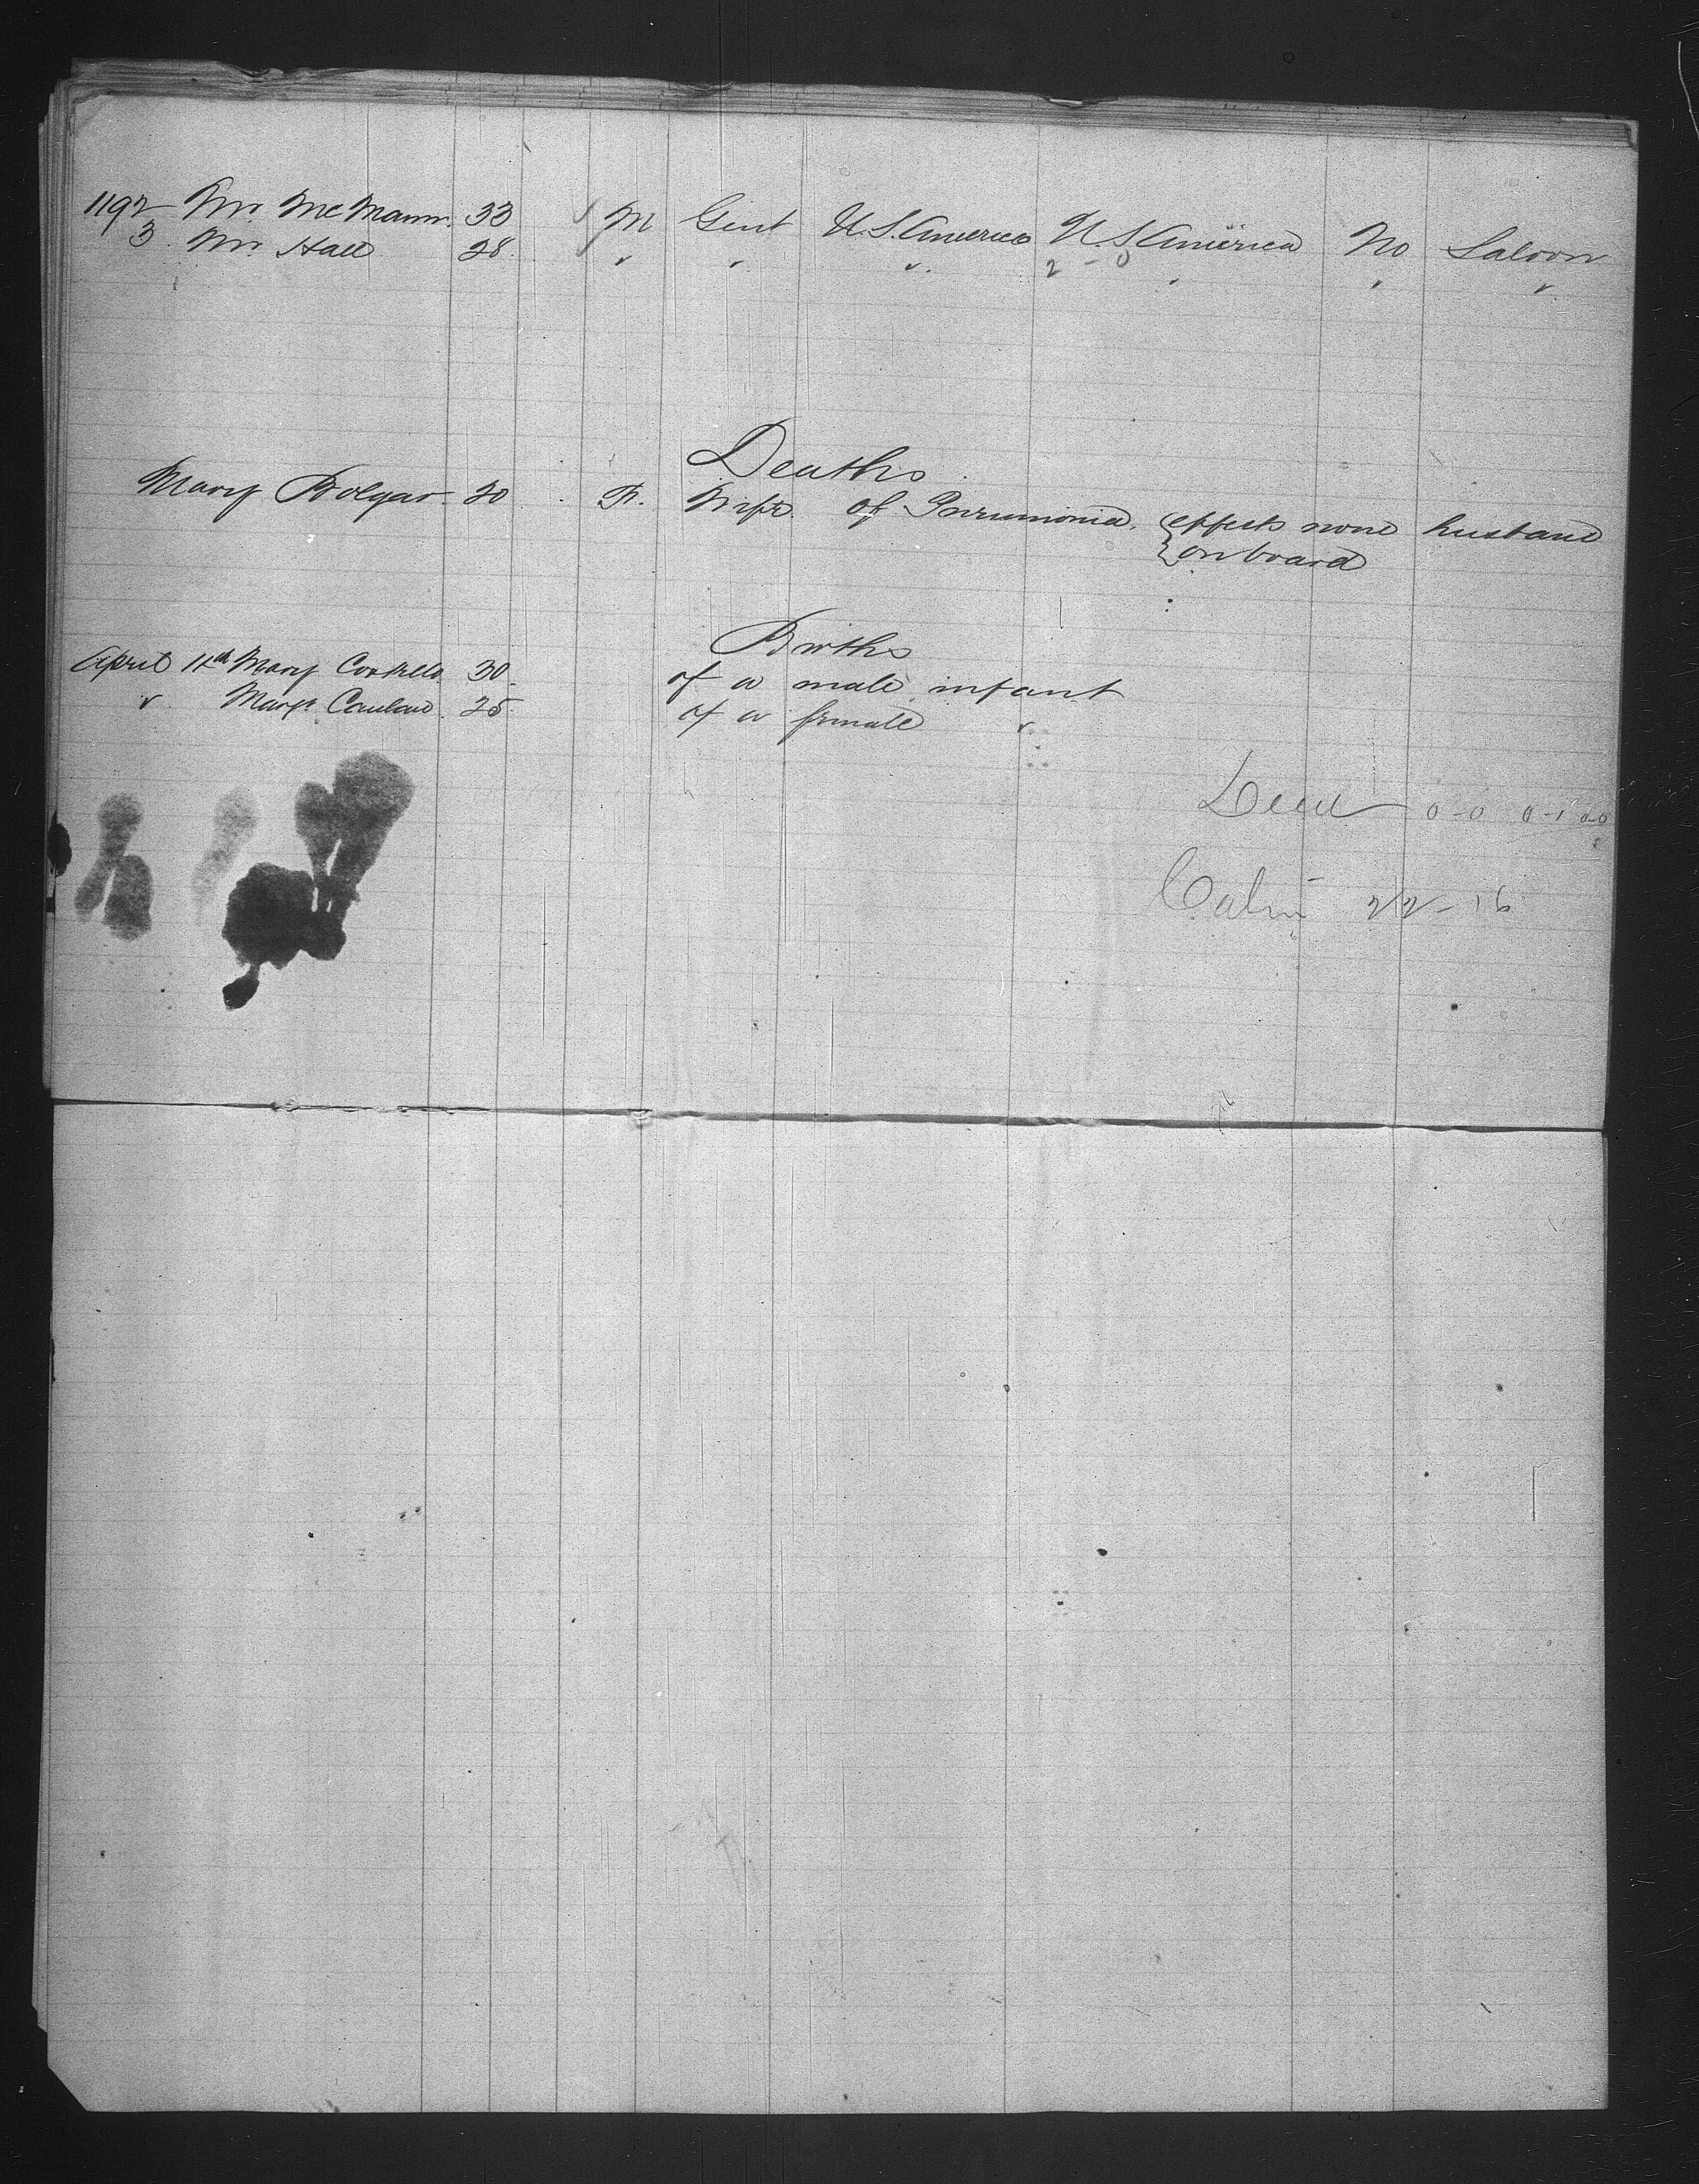 1192 Mr McMann. 33 M Gent U.S. America U S America No Saloon
3. Mr Hall 28. " " " 2 - 0 " " "
Deaths
Mary Bolgar. 20 F. Wife of Pneumonia, effects none husband
on board
Births
April 11th Mary Costello 30. of a male infant
" Mary 25. of a female "
Dead 0-0 0-1 0-0
Cabin 22-16